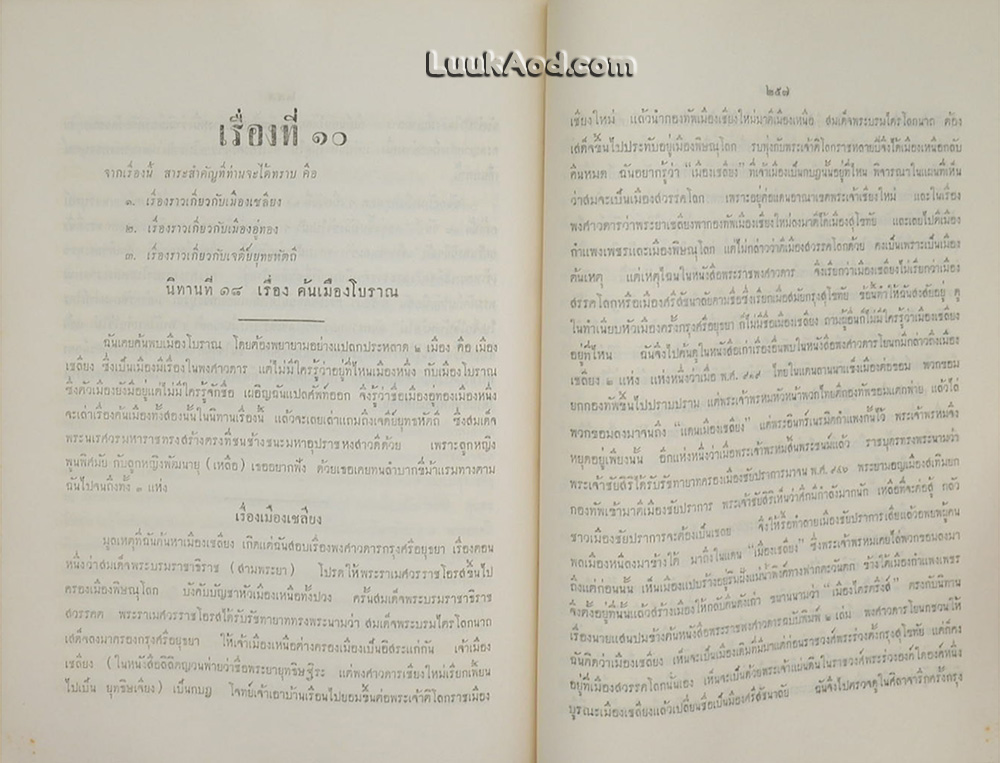 LuukAod.com
เรื่องที่ ๑๐
จากเรื่องนี้ สาระสำคัญที่ท่านจะได้ทราบ คือ
๑. เรื่องราวเกี่ยวกับเมืองเชลียง
๒. เรื่องราวเกี่ยวกับเมืองอู่ทอง
๓. เรื่องราวเกี่ยวกับเจดีย์ยุทธหัตถี
นิทานที่ ๑๘ เรื่อง ค้นเมืองโบราณ
ฉันเคยค้นพบเมืองโบราณ โดยต้องพยายามอย่างแปลกประหลาด ๒ เมือง คือ เมือง
เชลียง ซึ่งเป็นเมืองมีเรื่องในพงศาวดาร แต่ไม่มีใครรู้ว่าอยู่ที่ไหนเมืองหนึ่ง กับเมืองโบราณ
ซึ่งตัวเมืองยังมีอยู่แต่ไม่มีใครรู้จักชื่อ เผอิญฉันแปลศัพท์ออก จึงรู้ว่าชื่อเมืองอู่ทองเมืองหนึ่ง
จะเล่าเรื่องค้นเมืองทั้งสองนั้นในนิทานเรื่องนี้ แล้วจะเลยเล่าแถมถึงเจดีย์ยุทธหัตถี ซึ่งสมเด็จ
พระนเรศวรมหาราชทรงสร้างตรงที่ชนช้างชนะมหาอุปราชหงสาวดีด้วย เพราะลูกหญิง
พูนพิศมัย กับลูกหญิงพัฒนายุ (เหลือ) เธออยากฟัง ด้วยเธอเคยทนลำบากขี่ม้าแรมทางตาม
ฉันไปจนถึงทั้ง ๓ แห่ง
เรื่องเมืองเชลียง
มูลเหตุที่ฉันค้นหาเมืองเชลียง เกิดแต่ฉันสอบเรื่องพงศาวดารกรุงศรีอยุธยา เรื่องตอน
หนึ่งว่าสมเด็จพระบรมราชาธิราช (สามพระยา) โปรดให้พระราเมศวรราชโอรสขึ้นไป
ครองเมืองพิษณุโลก บังคับบัญชาหัวเมืองเหนือทั้งปวง ครั้นสมเด็จพระบรมราชาธิราช
สวรรคต พระราเมศวรราชโอรสได้รับรัชทายาททรงพระนามว่า สมเด็จพระบรมไตรโลกนาถ
เสด็จลงมาครองกรุงศรีอยุธยา ให้เจ้าเมืองเหนือต่างครองเมืองเป็นอิสระแก่กัน เจ้าเมือง
เชลียง (ในหนังสือลิลิตยวนพ่ายว่าชื่อพระยายุทธิษฐิระ แต่พงศาวดารเชียงใหม่เรียกเพี้ยน
ไปเป็น ยุทธิษเจียง) เป็นกบฏ โจทย์เจ้าเอาบ้านเรือนไปยอมขึ้นต่อพระเจ้าติโลกราชเมือง
๒๕๗
เชียงใหม่ แล้วนำกองทัพเมืองเชียงใหม่มาตีเมืองเหนือ สมเด็จพระบรมไตรโลกนาถ ต้อง
เสด็จขึ้นไปประทับอยู่เมืองพิษณุโลก รบพุ่งกับพระเจ้าติโลกราชหลายปีจึงได้เมืองเหนือกลับ
คืนหมด ฉันอยากรู้ว่า “เมืองเชลียง” ที่เจ้าเมืองเป็นกบฏนั้นอยู่ที่ไหน พิจารณาในแผนที่เห็น
ว่าสมจะเป็นเมืองสวรรคโลก เพราะอยู่ต่อแดนอาณาเขตพระเจ้าเชียงใหม่ และในเรื่อง
พงศาวดารว่าพระยาเชลียงพากองทัพเมืองเชียงใหม่ลงมาตีได้เมืองสุโขทัย และเลยไปตีเมือง
กำแพงเพชรและเมืองพิษณุโลก แต่ไม่กล่าวว่าตีเมืองสวรรคโลกด้วย คงเป็นเพราะเป็นเมือง
ต้นเหตุ แต่เหตุไฉนในหนังสือพระราชพงศาวดาร จึงเรียกว่าเมืองเชลียงไม่เรียกว่าเมือง
สวรรคโลกหรือเมืองศรีสัชนาลัยตามชื่อซึ่งเรียกเมื่อสมัยกรุงสุโขทัย ข้อนี้ทำให้ฉันสงสัยอยู่ ดู
ในทำเนียบหัวเมืองครั้งกรุงศรีอยุธยา ก็ไม่มีชื่อเมืองเชลียง ถามผู้อื่นก็ไม่มีใครรู้ว่าเมืองเชลียง
อยู่ที่ไหน ฉันจึงไปค้นดูในหนังสือเก่าเรื่องอื่นพบในหนังสือพงศาวดารโยนกมีกล่าวถึงเมือง
เชลียง ๒ แห่ง แห่งหนึ่งว่าเมื่อ พ.ศ. ไทยในแดนลานนาแข็งเมืองต่อขอม พวกขอม
ยกกองทัพขึ้นไปปราบปราม แต่พระเจ้าพรหมหัวหน้าพวกไทยตีกองทัพขอมแตกพ่าย แล้วไล่
พวกขอมลงมาจนถึง “แดนเมืองเชลียง” แต่พระอินทร์เนรมิตกำแพงกั้นไว้ พระเจ้าพรหมจึง
หยุดอยู่เพียงนั้น อีกแห่งหนึ่งว่าเมื่อพระเจ้าพรหมสิ้นพระชนม์แล้ว ราชบุตรทรงพระนามว่า
พระเจ้าชัยสิริได้รับรัชทายาทครองเมืองชัยปราการมาจน พ.ศ. พระยามอญเมืองสเทิมยก
กองทัพเข้ามาตีเมืองชัยปราการ พระเจ้าชัยสิริเห็นว่าศึกมีกำลังมากนัก เหลือที่จะต่อสู้ กลัว
ชาวเมืองชัยปราการจะต้องเป็นเชลย จึงให้รื้อทำลายเมืองชัยปราการเสียแล้วอพยพผู้คน
พลเมืองหนีลงมาข้างใต้ มาถึงในแดน “เมืองเชลียง” ซึ่งพระเจ้าพรหมเคยไล่พวกขอมลงมา
ถึงแต่ก่อนนั้น เห็นเมืองแปบร้างอยู่ริมฝั่งแม่น้ำพิงค์ทางฟากตะวันตก ข้างใต้เมืองกำแพงเพชร
จึงตั้งอยู่ที่นั้นแล้วสร้างเมืองให้กลับคืนดังเก่า ขนานนามว่า “เมืองไตรตรึงส์” ตรงกับนิทาน
เรื่องนายแสนปมข้างต้นหนังสือพระราชพงศาวดารฉบับพิมพ์ ๒ เล่ม พงศาวดารโยนกชวนให้
ฉันคิดว่าเมืองเชลียง เห็นจะเป็นเมืองเดิมมีมาแต่ก่อนราชวงศ์พระร่วงตั้งกรุงสุโขทัย แต่ก็คง
อยู่ที่เมืองสวรรคโลกนั้นเอง เห็นจะเป็นด้วยพระเจ้าแผ่นดินในราชวงศ์พระร่วงองค์ใดองค์หนึ่ง
บูรณะเมืองเชลียงแล้วเปลี่ยนชื่อเป็นเมืองศรีสัชนาลัย ฉันจึงไปตรวจดูในศิลาจารึกครั้งกรุง